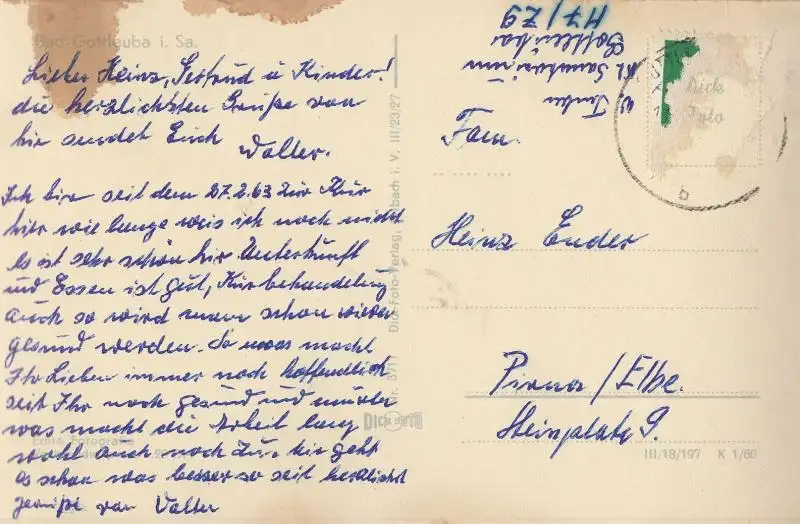 Bad Gottleuba i. Sa.
Lieber Heinz, Gertrud u Kinder!
die herzlichsten Grüße von
hir sendet Euch
Walter.
Ich bin seit dem 27.2.63 zur Kur
hier wie lange weis ich noch nicht
es ist sehr schön hir Unterkunft
und Essen ist gut, Kurbehandlung
auch so wird man schon wieder
gesund werden. So was macht
Ihr Lieben immer noch hoffendlich
seit Ihr noch gesund und munter
was macht die Arbeit lang
wohl auch noch zu. hir geht
es schon was besser so seit herzlichst
gegrüßt von Walter
Echte Fotografie
III/23/27
Dick-Foto-Verlag,
bach i. V.
DICK
W
Kl. Sanatorium
Gottleuba
H7/Z9
Dick
Foto
b
Fam.
Heinz Ender
Pirna/Elbe.
Steinplatz 9.
III/18/197 K 1/60